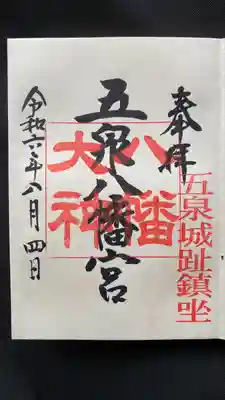 奉拝
五泉城趾鎮坐
八幡大神
五泉八幡宮
令和六年八月四日